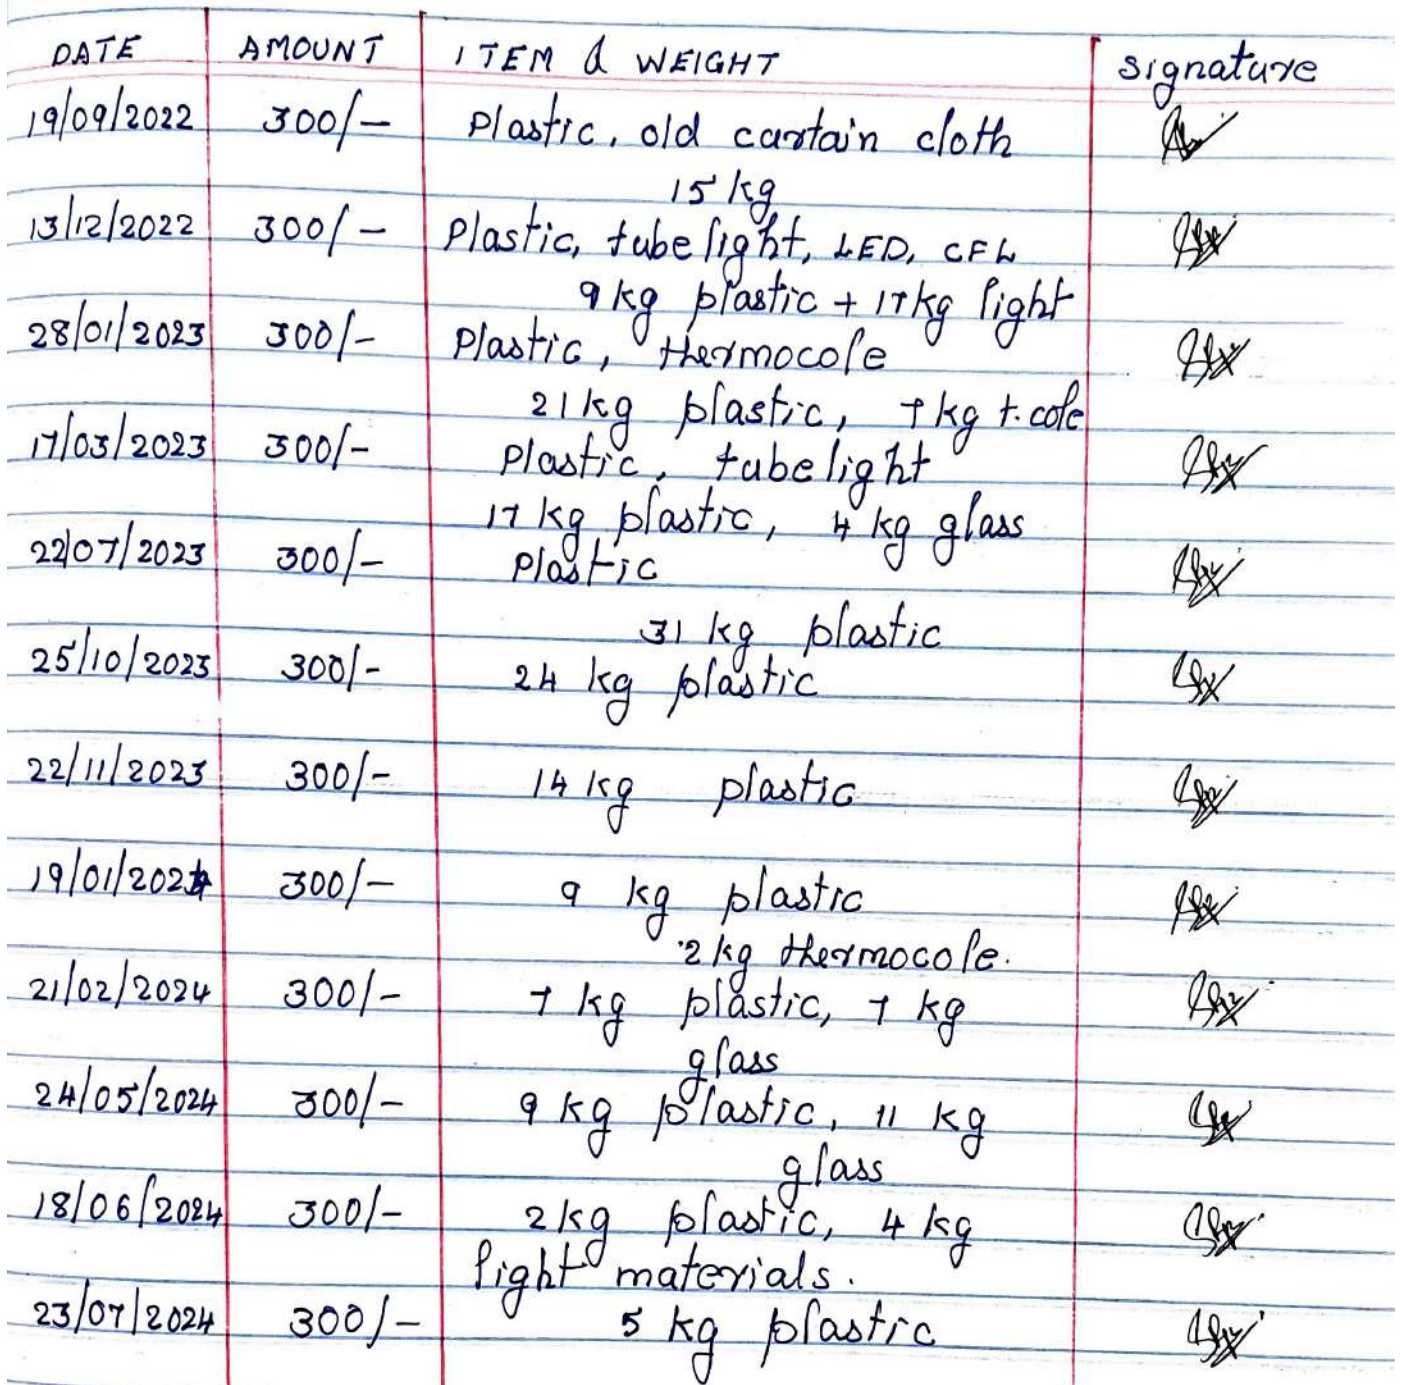 DATE AMOUNT ITEM & WEIGHT signature
19/09/2022 300/- Plastic, old cartain cloth
15 kg
13/12/2022 300/- Plastic, tube light, LED, CFL
9 kg plastic + 17 kg light
28/01/2023 300/- Plastic, thermocole
21 kg plastic, 7 kg t. cole
17/03/2023 300/- Plastic, tubelight
17 kg plastic, 4 kg glass
22/07/2023 300/- Plastic
31 kg plastic
25/10/2023 300/- 24 kg plastic
22/11/2023 300/- 14 kg plastic
19/01/2024 300/- 9 kg plastic
2 kg thermocole.
21/02/2024 300/- 7 kg plastic, 7 kg
glass
24/05/2024 300/- 9 kg plastic, 11 kg
glass
18/06/2024 300/- 2 kg plastic, 4 kg
light materials.
23/07/2024 300/- 5 kg plastic